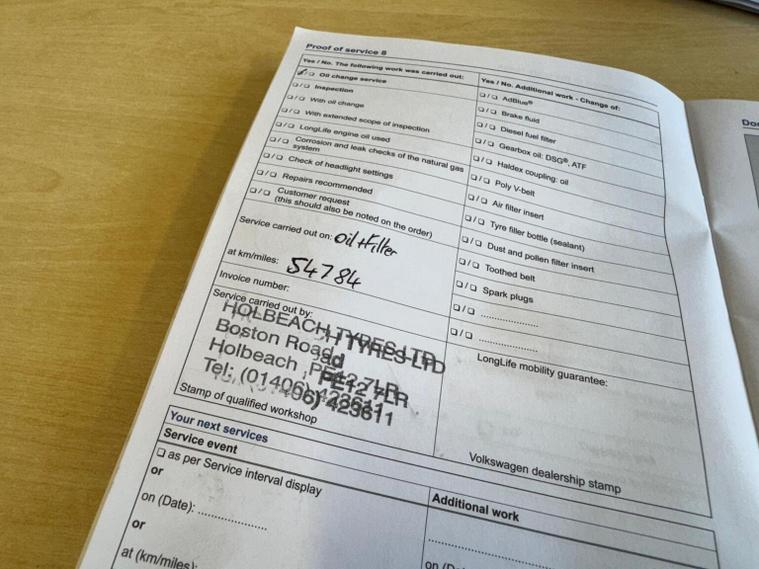 Proof of service 8
Yes / No. The following work was carried out:
☑/☐ Oil change service
☐/☐ Inspection
☐/☐ With oil change
☐/☐ With extended scope of inspection
☐/☐ LongLife engine oil used
☐/☐ Corrosion and leak checks of the natural gas
system
☐/☐ Check of headlight settings
☐/☐ Repairs recommended
☐/☐ Customer request
(this should also be noted on the order)
Service carried out on: Oil + Filter
at km/miles: 54784
Invoice number:
Service carried out by:
HOLBEACH TYRES LTD
Boston Road
Holbeach PE12 7LR
Tel: (01406) 423611
Stamp of qualified workshop
Yes / No. Additional work - Change of:
☐/☐ AdBlue®
☐/☐ Brake fluid
☐/☐ Diesel fuel filter
☐/☐ Gearbox oil: DSG®, ATF
☐/☐ Haldex coupling: oil
☐/☐ Poly V-belt
☐/☐ Air filter insert
☐/☐ Tyre filler bottle (sealant)
☐/☐ Dust and pollen filter insert
☐/☐ Toothed belt
☐/☐ Spark plugs
☐/☐ ....................
☐/☐ ....................
LongLife mobility guarantee:
Volkswagen dealership stamp
Your next services
Service event
☐ as per Service interval display
or
on (Date): ....................
or
at (km/miles):
Additional work
....................
on (Da